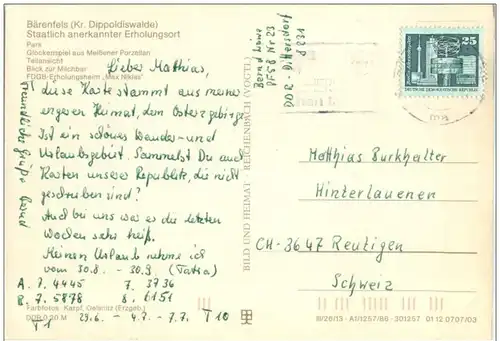 Bärenfels (Kr. Dippoldiswalde)
Staatlich anerkannter Erholungsort
Park
Glockenspiel aus Meißener Porzellan
Teilansicht
Blick zur Milchbar
FDGB-Erholungsheim „Max Niklas"
Lieber Matthias,
diese Karte stammt aus meiner
engeren Heimat, dem Osterzgebirge.
Ist ein schönes Wander- und
Urlaubsgebiet. Sammelst Du auch
Karten unserer Republik, die nicht
geschrieben sind?
Auch bei uns war es die letzten
Wochen sehr heiß.
Meinen Urlaub nehme ich
vom 30.8. - 30.9. (Tatra)
A. 7. 4445 7. 3736
R. 7. 5878 8. 6151
T 1 29.6. - 4.7. - 7.7. T 10
Freundliche Grüße Bernd
Farbfotos: Karpf, Oelsnitz (Erzgeb.)
DDR 0,20 M
BILD UND HEIMAT REICHENBACH (VOGTL)
Bernd Löwe
PF 58 Nr 23
DDR-Dittersdorf
9231
25
DEUTSCHE DEMOKRATISCHE REPUBLIK
Matthias Burkhalter
Hinterlauenen
CH-3647 Reutigen
Schweiz
III/26/13 · A1/1257/86 · 301257 01 12 0707/03